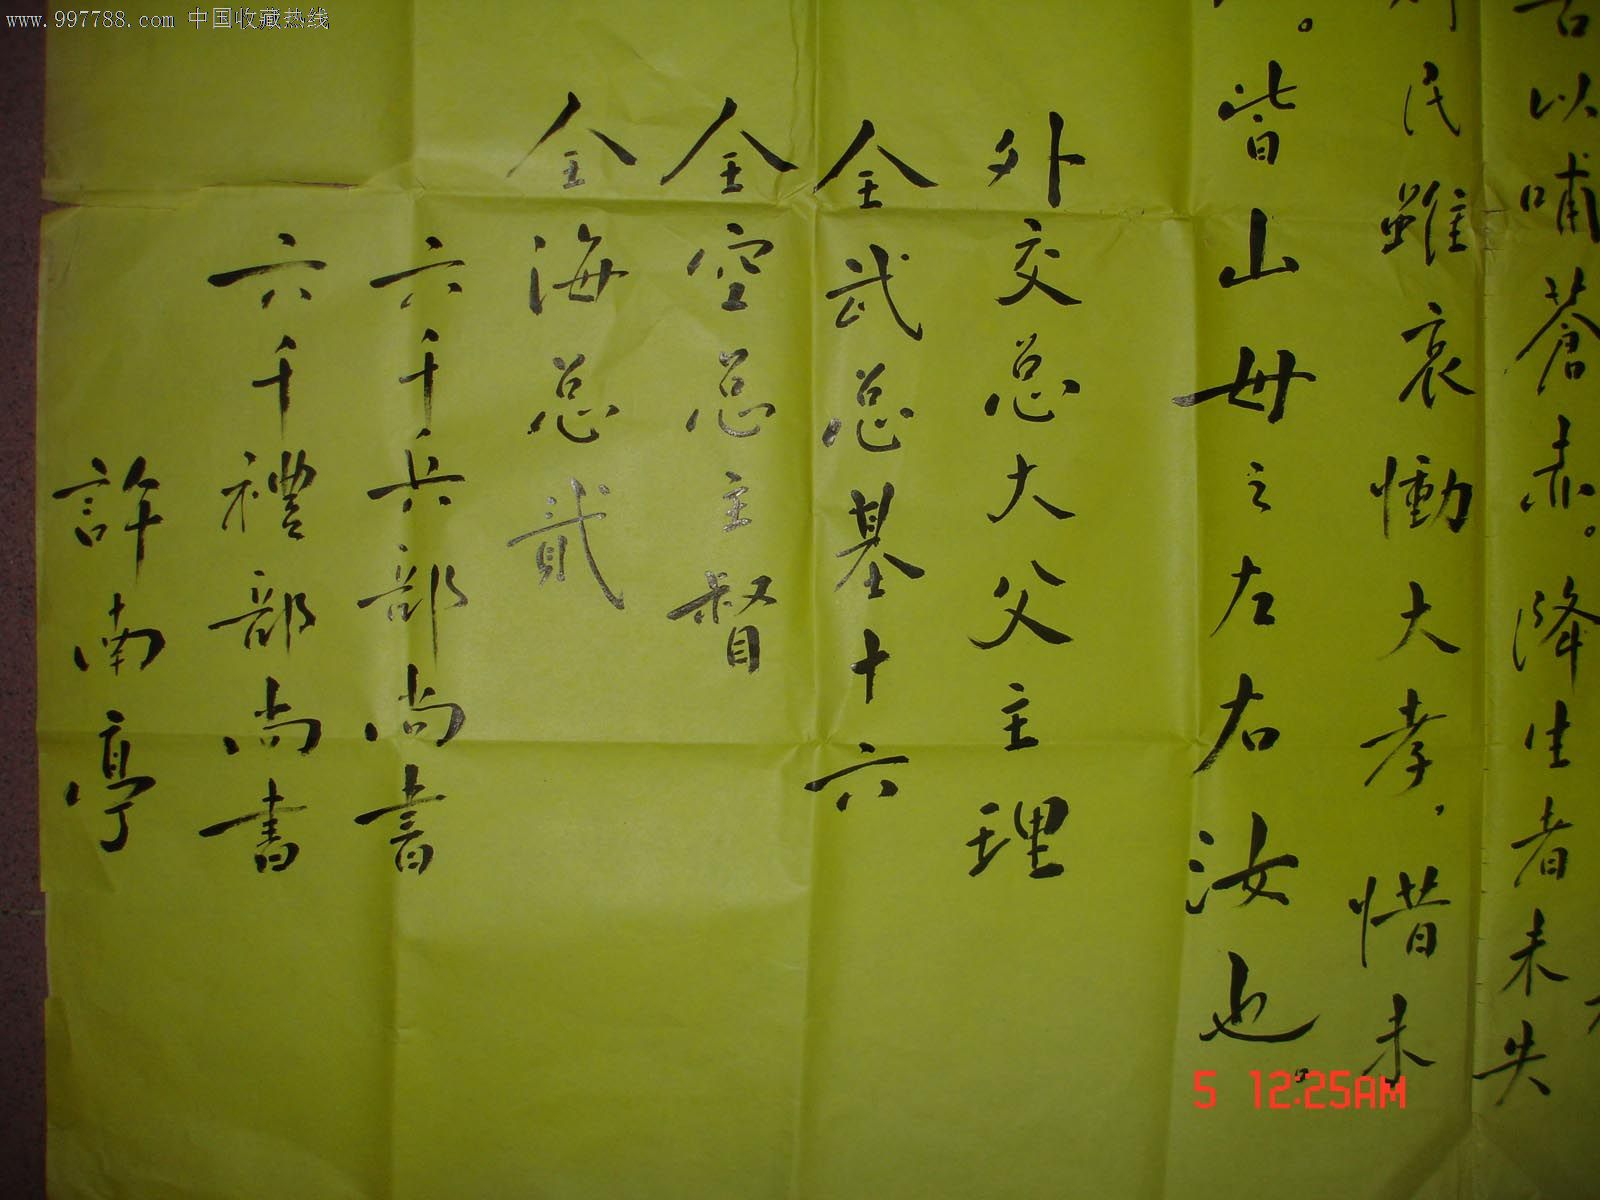 www.997788.com 中国收藏热线
古以哺蒼赤。降生者未失
民雖哀慟大孝，惜未
。皆山毋之左右汝也。
外交总大父主理
全武总基十六
全空总主督
全海总貳
六千兵部尚書
六千禮部尚書
許南亭
5 12:25AM